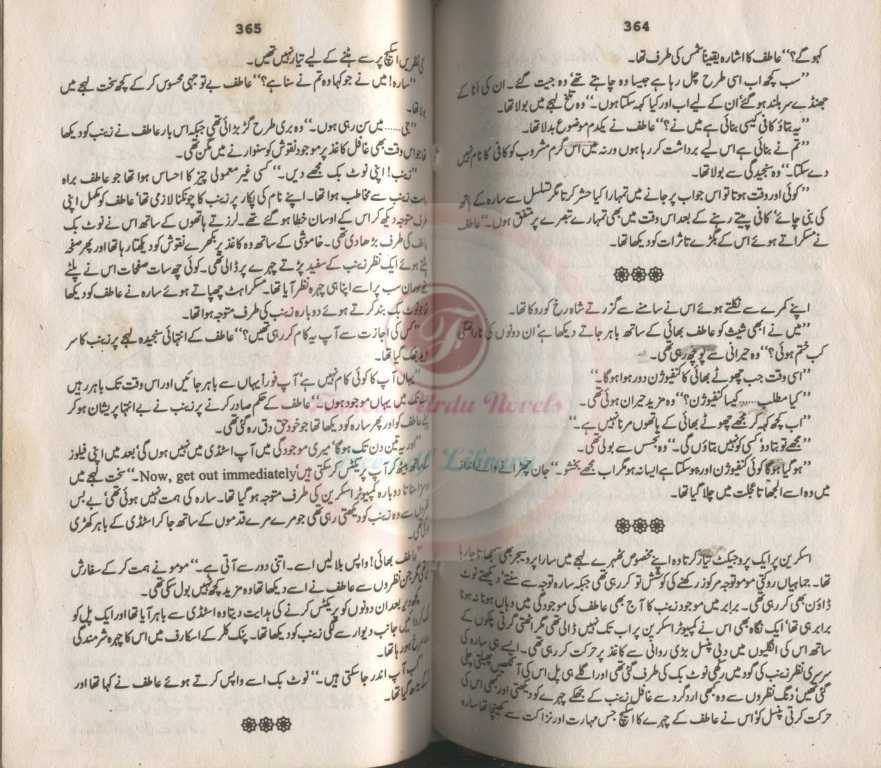 364
کہو گے؟“ عاطف کا اشارہ یقیناً شمس کی طرف تھا۔
”سب کچھ اب اسی طرح چل رہا ہے جیسا وہ چاہتے تھے‘ وہ جیت گئے۔ ان کی انا کے
جھنڈے سر بلند ہو گئے‘ ان کے لیے اب اور کیا کہہ سکتا ہوں۔“ وہ تلخ لہجے میں بولا تھا۔
”یہ بتاؤ کافی کیسی بنائی ہے میں نے؟“ عاطف نے یکدم موضوع بدلا تھا۔
”تم نے بنائی ہے اس لیے برداشت کر رہا ہوں ورنہ میں اس گرم مشروب کو کافی کا نام نہیں
دے سکتا۔“ وہ سنجیدگی سے بولا تھا۔
”کوئی اور وقت ہوتا تو اس جواب پر جانے میں تمہارا کیا حشر کرتا مگر تسلسل سے سارہ کے ہاتھ
کی بنی چائے‘ کافی پیتے رہنے کے بعد اس وقت میں بھی تمہارے تبصرے پر متفق ہوں۔“ عاطف
نے مسکراتے ہوئے اس کے بگڑے تاثرات کو دیکھا تھا۔
اپنے کمرے سے نکلتے ہوئے اس نے سامنے سے گزرتے شاہ رخ کو روکا تھا۔
”میں نے ابھی شیث کو عاطف بھائی کے ساتھ باہر جاتے دیکھا ہے‘ ان دونوں کی ناراضگی
کب ختم ہوئی؟“ وہ حیرانی سے پوچھ رہی تھی۔
”اسی وقت جب چھوٹے بھائی کا کنفیوژن دور ہوا ہوگا۔“
”کیا مطلب...... کیسا کنفیوژن؟“ وہ مزید حیران ہوئی تھی۔
”اب کچھ کہہ کر مجھے چھوٹے بھائی کے ہاتھوں مرنا نہیں ہے۔“
”مجھے تو بتا دو‘ کسی کو نہیں بتاؤں گی۔“ وہ تجسس سے بولی تھی۔
”ہو گیا ہوگا کوئی کنفیوژن اور ہو سکتا ہے ایسا نہ ہو مگر اب مجھے بخشو۔“ جان چھڑانے والے انداز
میں وہ اسے الجھاتا عجلت میں چلا گیا تھا۔
اسکرین پر ایک پروجیکٹ تیار کرتا وہ اپنے مخصوص ٹھہرے لہجے میں سارا پروسیجر بھی سمجھاتا جا رہا
تھا۔ جماہیاں روکتی مومو توجہ مرکوز رکھنے کی کوشش تو کر رہی تھی جبکہ سارہ توجہ سے سنتے‘ دیکھتے نوٹ
ڈاؤن بھی کر رہی تھی۔ برابر میں موجود زینب کا آج بھی عاطف کی موجودگی میں وہاں ہونا نہ ہونا
برابر ہی تھا‘ ایک نگاہ بھی اس نے کمپیوٹر اسکرین پر اب تک نہیں ڈالی تھی مگر اٹھتی گرتی پلکوں کے
ساتھ اس کی انگلیوں میں دبی پنسل بڑی روانی سے کاغذ پر حرکت کر رہی تھی۔ ایسے ہی سارہ کی
سرسری نظر زینب کی گود میں رکھی نوٹ بک کی طرف گئی تھی اور اگلے ہی پل اس کی آنکھیں پھیلتی چلی
گئی تھیں‘ دنگ نظروں سے وہ کبھی ارد گرد سے غافل زینب کے جھکے چہرے کو دیکھتی اور کبھی اس کی
حرکت کرتی پنسل کو‘ اس نے عاطف کے چہرے کا اسکیچ جس مہارت اور نزاکت سے کھینچا تھا سارہ
365
کی نظریں اسکیچ پر سے ہٹنے کے لیے تیار نہیں تھیں۔
”سارہ! میں نے جو کہا وہ تم نے سنا ہے؟“ عاطف بے توجہی محسوس کر کے کچھ سخت لہجے میں
بولا تھا۔
”جی...... میں سن رہی ہوں۔“ وہ بری طرح گڑبڑائی تھی جبکہ اس بار عاطف نے زینب کو دیکھا
تھا جو اس وقت بھی غافل کاغذ پر موجود نقوش کو سنوارنے میں مگن تھی۔
”زینب! اپنی نوٹ بک مجھے دیں۔“ کسی غیر معمولی چیز کا احساس ہوا تھا جو عاطف براہ
راست زینب سے مخاطب ہوا تھا۔ اپنے نام کی پکار پر زینب کا چونکنا لازمی تھا‘ عاطف کو مکمل اپنی
طرف متوجہ دیکھ کر اس کے اوسان خطا ہو گئے تھے۔ لرزتے ہاتھوں کے ساتھ اس نے نوٹ بک
عاطف کی طرف بڑھا دی تھی۔ خاموشی کے ساتھ وہ کاغذ پر بکھرے نقوش کو دیکھتا رہا تھا اور پھر صفحہ
پلٹتے ہوئے ایک نظر زینب کے سفید پڑتے چہرے پر ڈالی تھی۔ کوئی چھ سات صفحات اس نے پلٹے
تھے اور ان سب پر اسے اپنا ہی چہرہ نظر آیا تھا۔ مسکراہٹ چھپاتے ہوئے سارہ نے عاطف کو دیکھا
تھا جو نوٹ بک بند کرتے ہوئے دوبارہ زینب کی طرف متوجہ ہوا تھا۔
”کس کی اجازت سے آپ یہ کام کر رہی تھیں؟“ عاطف کے انتہائی سنجیدہ لہجے پر زینب کا سر
جھک گیا تھا۔
”یہاں آپ کا کوئی کام نہیں ہے‘ آپ فوراً یہاں سے باہر جائیں اور اس وقت تک باہر رہیں
جب تک میں یہاں موجود ہوں۔“ عاطف کے حکم صادر کرنے پر زینب نے بے انتہا پریشان ہو کر
پہلے عاطف کو اور پھر سارہ کو دیکھا تھا جو خود حق دق رہ گئی تھی۔
”اور یہ تین دن تک ہوگا‘ میری موجودگی میں آپ اسٹڈی میں نہیں ہوں گی‘ بعد میں اپنی فیلوز
کے ساتھ بیٹھ کر آپ پریکٹس کر سکتی ہیں‘ Now, get out immediately۔“ سخت لہجے میں
دوبارہ کمپیوٹر اسکرین کی طرف متوجہ ہو گیا تھا۔ سارہ کی ہمت نہیں ہوئی تھی‘ بے بس
سے وہ زینب کو دیکھتی رہی تھی جو مرے مرے قدموں کے ساتھ جا کر اسٹڈی کے باہر کھڑی
ہو گئی تھی۔
”عاطف بھائی! واپس بلا لیں اسے۔ اتنی دور سے آتی ہے۔“ مومو نے ہمت کر کے سفارش
کی تھی مگر جن نظروں سے عاطف نے اسے دیکھا تھا وہ مزید کچھ نہیں بول سکی تھی۔
کچھ دیر بعد ان دونوں کو پریکٹس کرنے کی ہدایت دیتا وہ اسٹڈی سے باہر آیا تھا اور ایک پل کو
رک کر جانب دیوار سے لگی زینب کو دیکھا تھا۔ پنک کلر کے اسکارف میں اس کا چہرہ شرمندگی
سے سرخ ہو رہا تھا۔
”اب آپ اندر جا سکتی ہیں۔“ نوٹ بک اسے واپس کرتے ہوئے عاطف نے کہا تھا اور
آگے بڑھ گیا تھا۔